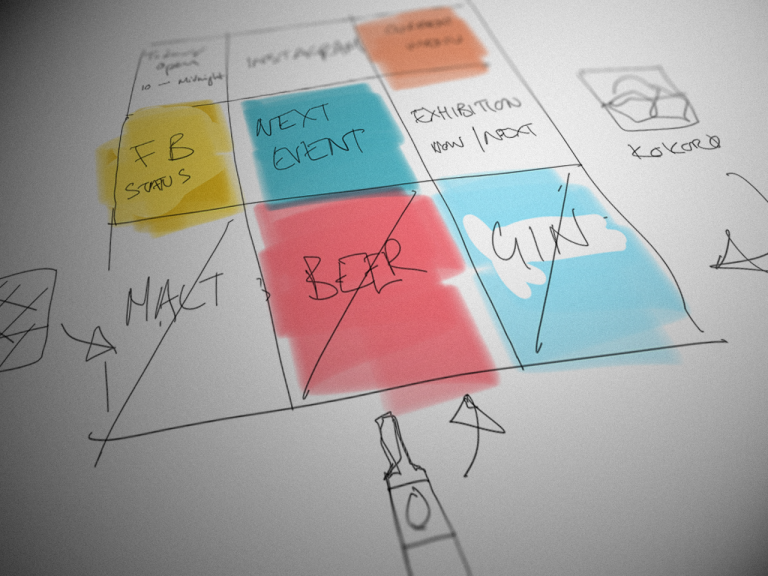 Today
open
10 — Midnight
INSTAGRAM
CURRENT
FB
STATUS
NEXT
EVENT
EXHIBITION
NOW / NEXT
KOKORO
MALT
BEER
GIN